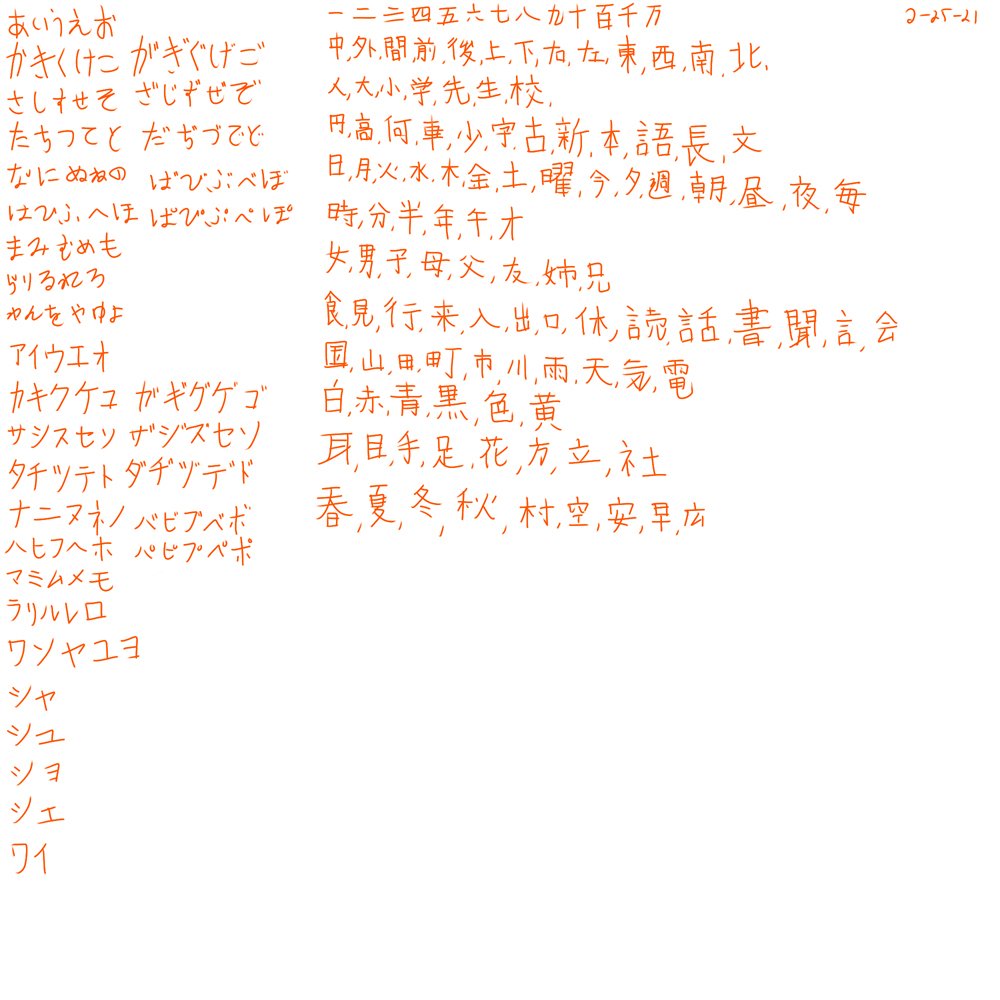 あいうえお
かきくけこ がぎぐげご
さしすせそ ざじずぜぞ
たちつてと だぢづでど
なにぬねの ばびぶべぼ
はひふへほ ぱぴぷぺぽ
まみむめも
らりるれろ
わんをやゆよ
アイウエオ
カキクケコ ガギグゲゴ
サシスセソ ザジズセソ
タチツテト ダヂヅデド
ナニヌネノ バビブベボ
ハヒフヘホ パピプペポ
マミムメモ
ラリルレロ
ワンヤユヨ
シャ
シュ
ショ
シェ
ワイ
一二三四五六七八九十百千万
中,外,間,前,後,上,下,右,左,東,西,南,北,
人,大,小,学,先,生,校,
円,高,何,車,少,字,古,新,本,語,長,文
日,月,火,水,木,金,土,曜,今,夕,週,朝,昼,夜,毎
時,分,半,年,午,才
女,男,子,母,父,友,姉,兄
食,見,行,来,入,出,口,休,読,話,書,聞,言,会
国,山,田,町,市,川,雨,天,気,電
白,赤,青,黒,色,黄
耳,目,手,足,花,方,立,社
春,夏,冬,秋,村,空,安,早,広
2-25-21